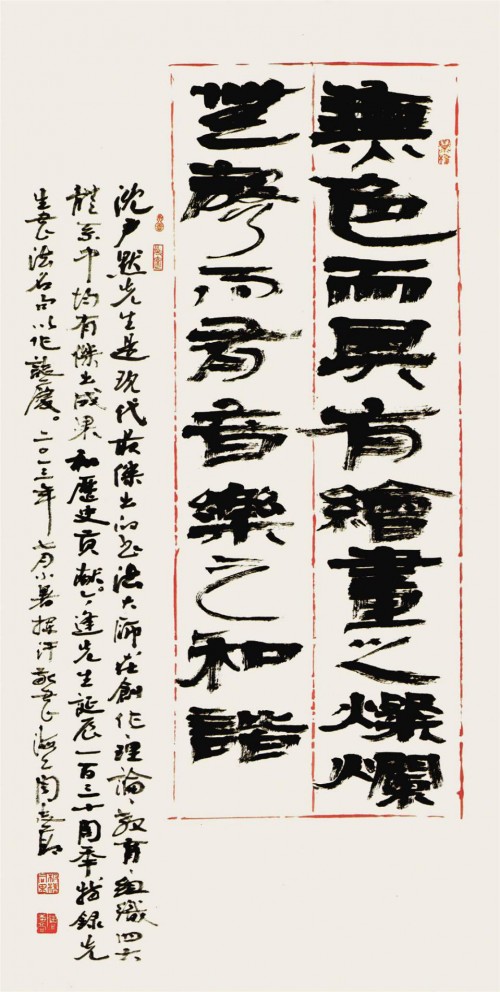 無色而具有繪畫之燦爛
無聲而有音樂之和諧
沈尹默先生是现代最傑出的书法大師在創作、理論、教育、組織四大
體系中均有傑出成果和歷史貢献。今逢先生誕辰一百三十周年特録先
生書法名句以作誌慶。二〇一三年七月小暑揮汗敬書海上周志高